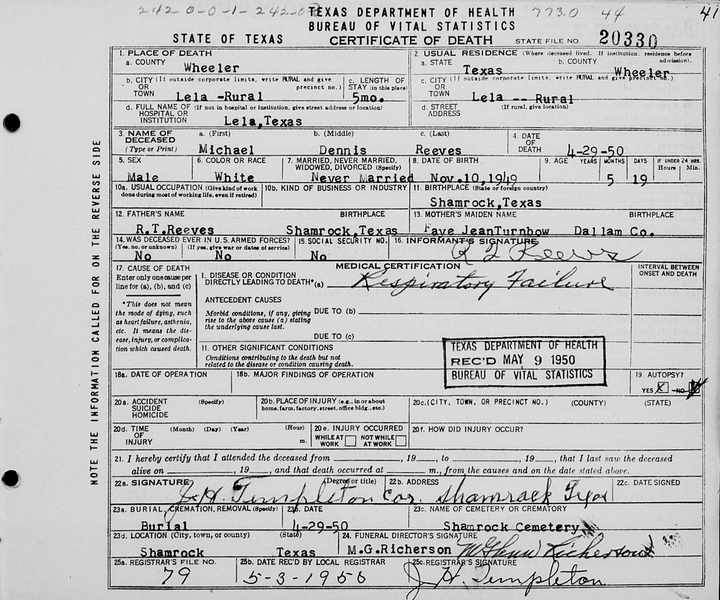 242-0-0-1-242-0 TEXAS DEPARTMENT OF HEALTH 7730 44 41
BUREAU OF VITAL STATISTICS
STATE OF TEXAS CERTIFICATE OF DEATH STATE FILE NO. 20330
1. PLACE OF DEATH
a. COUNTY Wheeler
2. USUAL RESIDENCE (Where deceased lived. If institution, residence before admission).
a. STATE Texas b. COUNTY Wheeler
b. CITY (If outside corporate limits, write RURAL and give precinct no.) OR TOWN Lela -Rural
c. LENGTH OF STAY (in this place) 5mo.
c. CITY (If outside corporate limits, write RURAL and give precinct no.) OR TOWN Lela -- Rural
d. FULL NAME OF (If not in hospital or institution, give street address or location) HOSPITAL OR INSTITUTION Lela,Texas
d. STREET ADDRESS (If rural, give location)
3. NAME OF DECEASED (Type or Print) a. (First) Michael b. (Middle) Dennis c. (Last) Reeves
4. DATE OF DEATH 4-29-50
5. SEX Male
6. COLOR OR RACE White
7. MARRIED, NEVER MARRIED, WIDOWED, DIVORCED (Specify) Never Married
8. DATE OF BIRTH Nov.10,1949
9. AGE YEARS MONTHS 5 DAYS 19 IF UNDER 24 HRS. Hours Min.
10a. USUAL OCCUPATION (Give kind of work done during most of working life, even if retired)
10b. KIND OF BUSINESS OR INDUSTRY
11. BIRTHPLACE (State or foreign country) Shamrock,Texas
12. FATHER'S NAME R.T.Reeves BIRTHPLACE Shamrock,Texas
13. MOTHER'S MAIDEN NAME Faye JeanTurnbow BIRTHPLACE Dallam Co.
14. WAS DECEASED EVER IN U.S. ARMED FORCES? (Yes, no, or unknown) No (If yes, give war or dates of service) No
15. SOCIAL SECURITY NO. No
16. INFORMANT'S SIGNATURE Reeves
17. CAUSE OF DEATH
Enter only one cause per line for (a), (b), and (c)
*This does not mean the mode of dying, such as heart failure, asthenia, etc. It means the disease, injury, or complication which caused death.
MEDICAL CERTIFICATION
I. DISEASE OR CONDITION DIRECTLY LEADING TO DEATH*(a) Respiratory Failure
INTERVAL BETWEEN ONSET AND DEATH
ANTECEDENT CAUSES
Morbid conditions, if any, giving rise to the above cause (a) stating the underlying cause last.
DUE TO (b)
DUE TO (c)
11. OTHER SIGNIFICANT CONDITIONS
Conditions contributing to the death but not related to the disease or condition causing death.
TEXAS DEPARTMENT OF HEALTH
REC'D MAY 9 1950
BUREAU OF VITAL STATISTICS
18a. DATE OF OPERATION
18b. MAJOR FINDINGS OF OPERATION
19 AUTOPSY? YES NO
20a. ACCIDENT SUICIDE HOMICIDE (Specify)
20b. PLACE OF INJURY (e.g., in or about home, farm, factory, street, office bldg., etc.)
20c. (CITY, TOWN, OR PRECINCT NO.) (COUNTY) (STATE)
20d. TIME OF INJURY (Month) (Day) (Year) (Hour) m.
20e. INJURY OCCURRED WHILE AT WORK NOT WHILE AT WORK
20f. HOW DID INJURY OCCUR?
21. I hereby certify that I attended the deceased from , 19 , to , 19 , that I last saw the deceased
alive on , 19 , and that death occurred at m., from the causes and on the date stated above.
22a. SIGNATURE J.H. Templeton Cor. (Degree or title)
22b. ADDRESS Shamrock Texas
22c. DATE SIGNED
23a. BURIAL, CREMATION, REMOVAL (Specify) Burial
23b. DATE 4-29-50
23c. NAME OF CEMETERY OR CREMATORY Shamrock Cemetery
23d. LOCATION (City, town, or county) Shamrock (State) Texas
24. FUNERAL DIRECTOR'S SIGNATURE M.G.Richerson
25a. REGISTRAR'S FILE NO. 79
25b DATE REC'D BY LOCAL REGISTRAR 5-3-1950
25c. REGISTRAR'S SIGNATURE J H Templeton
NOTE THE INFORMATION CALLED FOR ON THE REVERSE SIDE